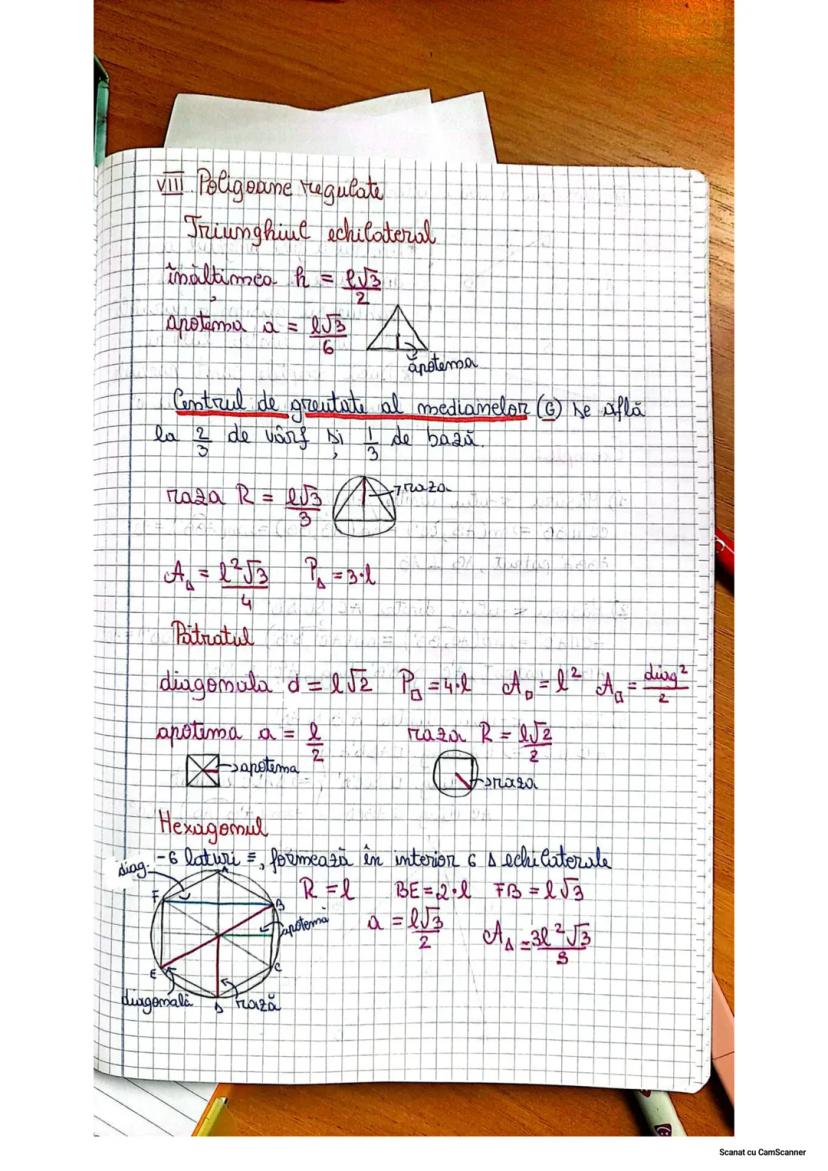 VIII. Poligoane regulate
Triunghiul echilateral
înălțimea h = l√3/2
apotema a = l√3/6
apotema
Centrul de greutate al medianelor (G) se află
la 2/3 de vârf și 1/3 de bază.
raza R = l√3/3
raza
A△ = l²√3/4 P△ = 3·l
Pătratul
diagonala d = l√2 P□ = 4·l A□ = l² A□ = diag²/2
apotema a = l/2 raza R = l√2/2
apotema
raza
Hexagonul
- 6 laturi ≡, formează în interior 6 △ echilaterale
diag.
A
F
B
R = l BE = 2·l FB = l√3
apotemă
a = l√3/2 A△ = 3l²√3/3
E
C
diagonală
D
rază
Scanat cu CamScanner